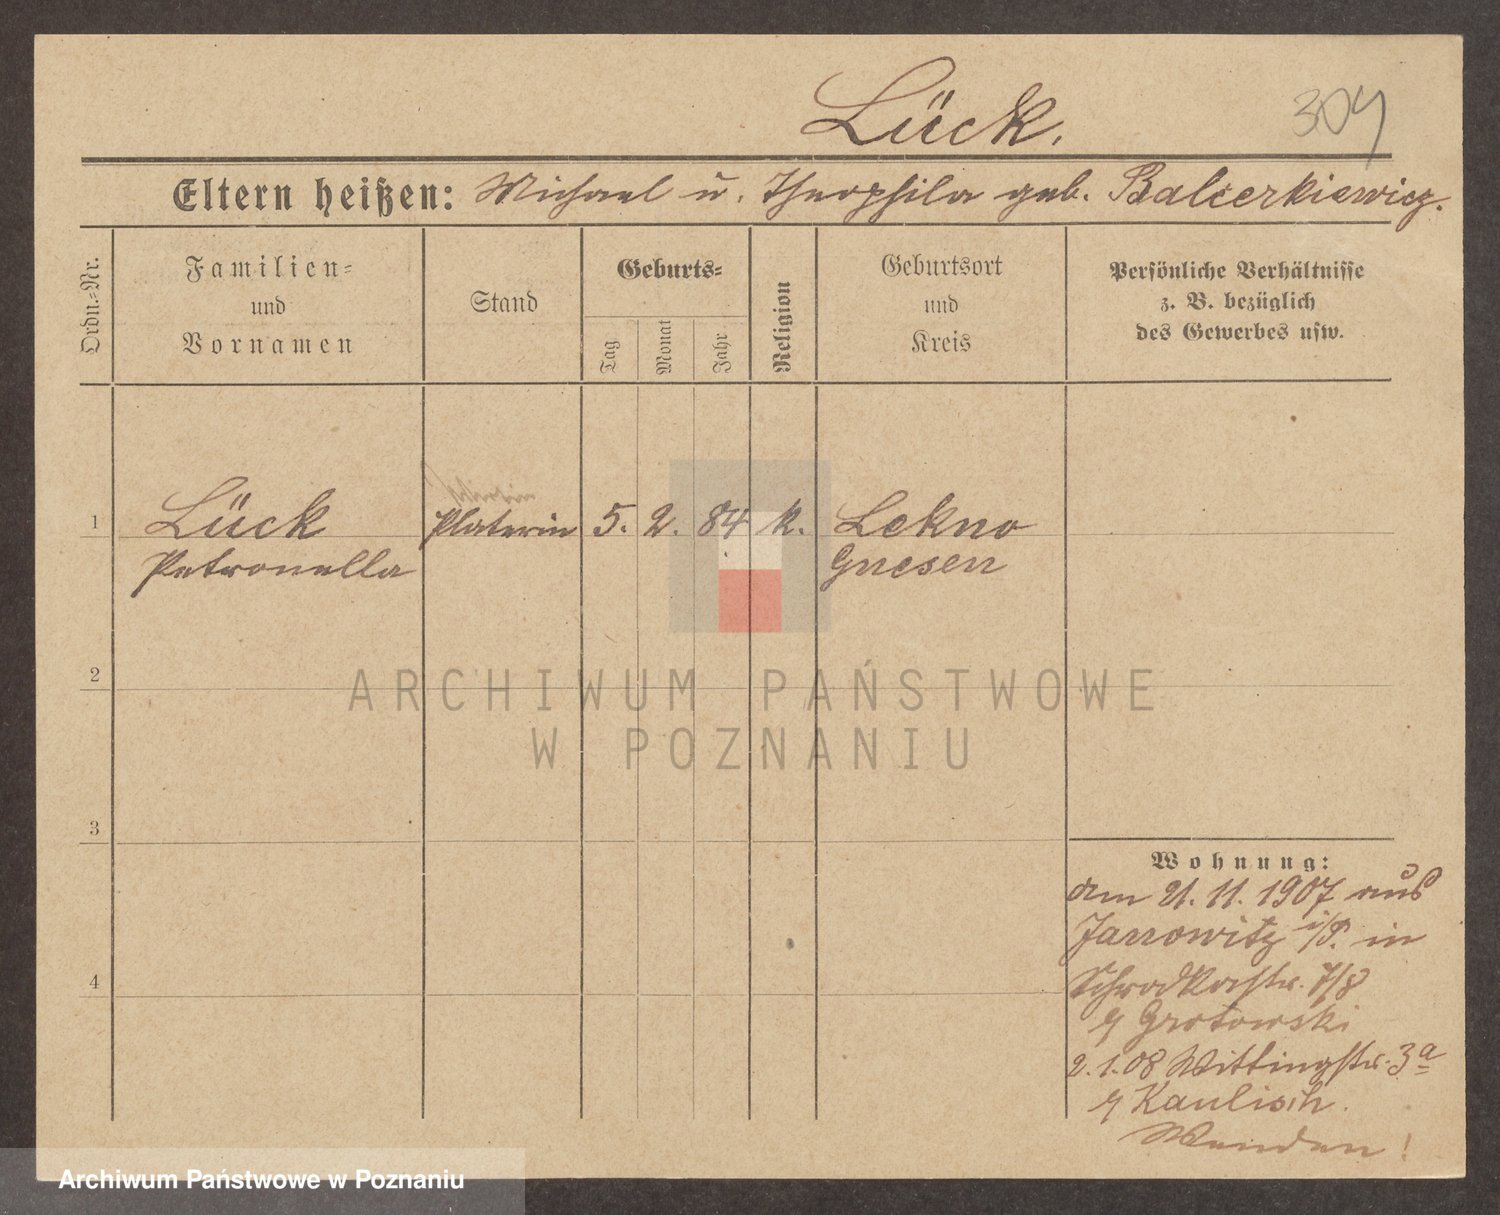 Lück. 304
Eltern heißen: Michael u. Theophila geb. Balcerkiewicz.
Ordn.-Nr.
Familien-
und
Vornamen
Stand
Geburts-
Tag
Monat
Jahr
Religion
Geburtsort
und
Kreis
Persönliche Verhältnisse
z. B. bezüglich
des Gewerbes usw.
1 Lück Platerin 5. 2. 84 k. Lekno
Petronella Gnesen
2
ARCHIWUM PAŃSTWOWE
W POZNANIU
3
Wohnung:
am 21. 11. 1907 aus
Janowitz i/P. in
Schrodkastr. 7/8
Grotowski
4
2. 1. 08 Wittingstr. 3a
Kaulisch.
Wenden!
Archiwum Państwowe w Poznaniu